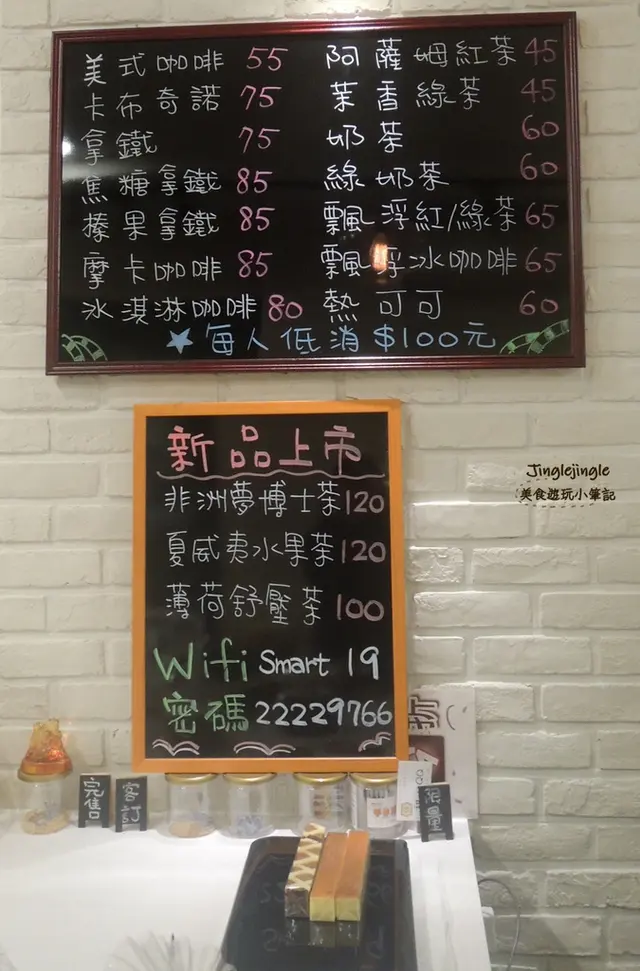 美式咖啡 55
卡布奇諾 75
拿鐵 75
焦糖拿鐵 85
榛果拿鐵 85
摩卡咖啡 85
冰淇淋咖啡 80
阿薩姆紅茶 45
茉香綠茶 45
奶茶 60
綠奶茶 60
飄浮紅/綠茶 65
飄浮冰咖啡 65
熱可可 60
★每人低消$100元
新品上市
非洲夢博士茶 120
夏威夷水果茶 120
薄荷舒壓茶 100
Wifi Smart 19
密碼 22229766
Jinglejingle
美食遊玩小筆記
完售
客訂
限量